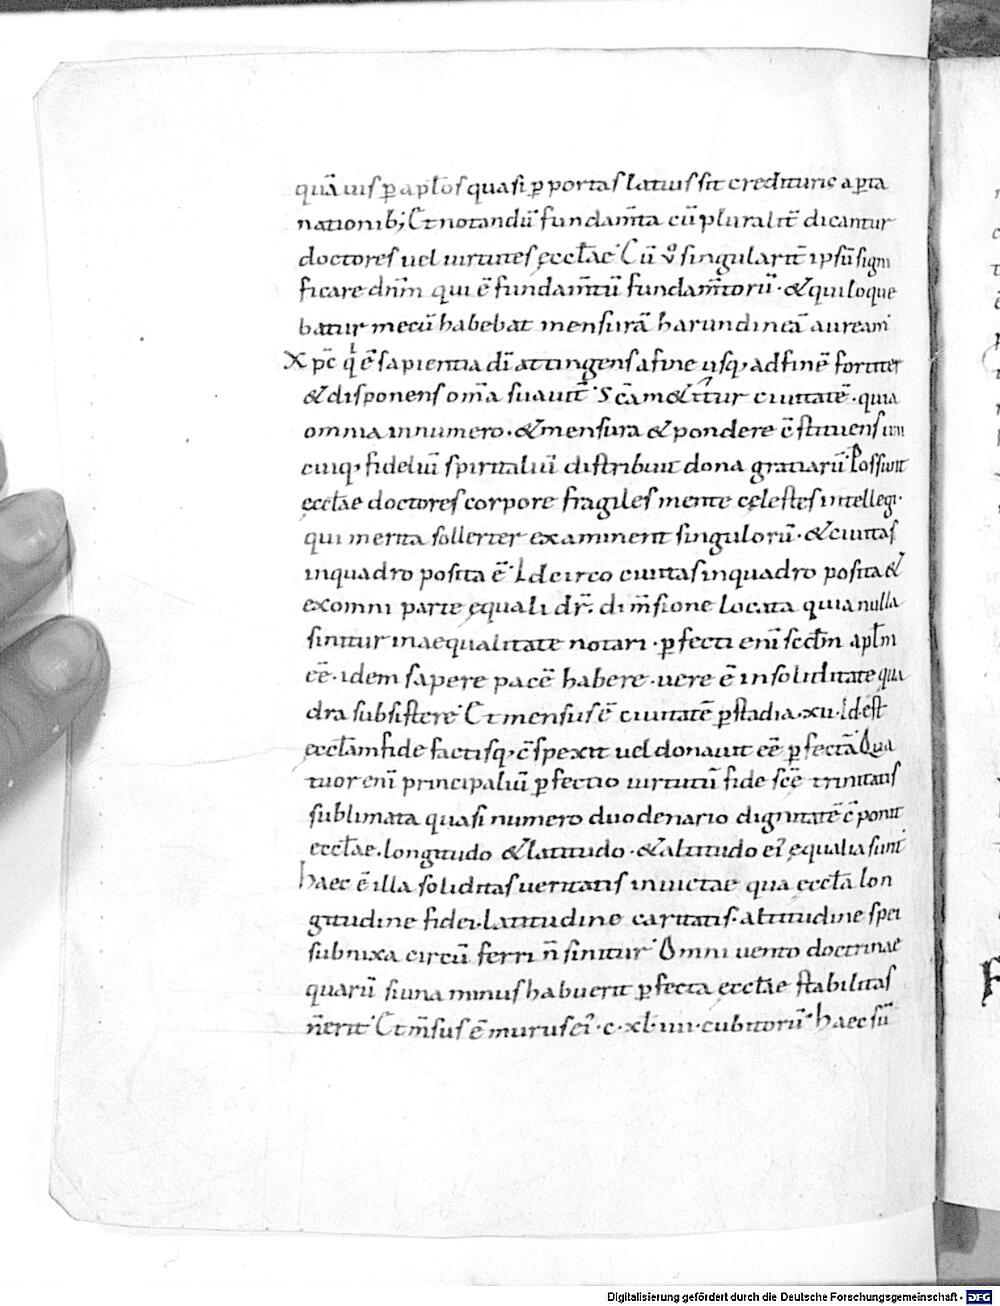 quā uis p̄ apłos quasi p̄ portas latius sit credituris aperta
nationib; Et notandū fundam̄ta cū pluralit̄ dicantur
doctores uel uirtutes ęccłae Cū v̊ singularit̄ ipsū signi
ficare dn̄m qui ē fundam̄tū fundam̄torū · & qui loque
batur mecū habebat mensurā harundineā auream
X pc̄ q ē sapientia dī attingens a fine usq; ad finē fortiter
& disponens om̄a suauit̄ S c̄am &itur ciuitatē · quia
omnia in numero · & mensura & pondere c̄stituens uni
cuiq; fidelíū spiritaliū distribuit dona gratiarū Possunt
ęccłae doctores corpore fragiles mente cęlestes intellegi ·
qui merita sollerter examinent singulorū · & ciuitas
inquadro posita ē · Idcirco ciuitas inquadro posita &
exomni parte ęquali dr̄ · dim̄sione locata quia nulla
sinitur inaequalitate notari · p̄fecti enī scdm̄ apłm
ēē · idem sapere pacē habere · uere ē in soliditate qua
dra subsistere Et mensus ē ciuitatē p̄ stadia · xii · Idest
ęccłam fide factisq; c̄spexit uel donauit ēē p̄fectā Qua
tuor enī principaliū p̄fectio uirtutū fide scē trinitatis
sublimata quasi numero duodenario dignitatē c̄ponit
ęccłae · longitudo & latitudo · & altitudo ei' ęqualia sunt
haec ē illa soliditas ueritatis inuictae qua ęccła lon
gitudine fidei · latitudine caritatis · altitudine spei
subnixa circū ferri n̄ sinitur Omni uento doctrinae
quarū si una minus habuerit p̄fecta ęccłae stabilitas
n̄ erit Et m̄sus ē murus ei' · c · xl · iiii · cubitorū haec sū
Digitalisierung gefördert durch die Deutsche Forschungsgemeinschaft - DFG